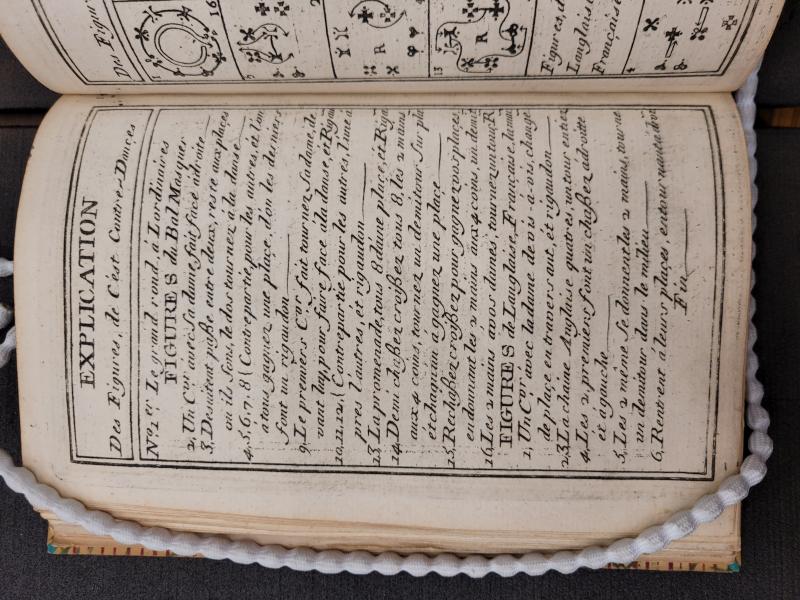 EXPLICATION
Des Figures, de C'est Contres Dances
Nº 1er Le grand rond, à L'ordinaires
FIGURES du Bal Masquer
2, Un Cer avec Sa dame fait face à droite
3, De suitent passe entre deux, reste aux places
où ils Sons, le dos tournez à la danse
4, 5, 6, 7, 8 (Contrepartie pour les autres, et l'on
a tous gagnez une place, don les derniers
font un rigaudon
9, Le premiers Cer fait tournez Sa dame, de
vant luy, pour faire face à la danse, et Rigau
10, 11, 12, (Contrepartie pour les autres, l'un à
pres l'autres, et rigaudon
13, La promenade tous 8 d'une place, et Riga
14, Demi chassez croissez tous 8, les 2 mains
aux 4 coins, tournez un demitour Sur pla
et chaqu'un à gagnez une place
15, Rechassez croissez pour gagnez vos places
en donnant les 2 mains aux 4 coins, un demit
16, Les 2 mains à vos dames, tournez un tour, R
FIGURES de L'anglaise, Française
1, Un Cer avec la dame de vis-à-vis, change
de place en travers aut, et rigaudon
2, 3, La chaine Anglaise quatres, un tour entiez
4, Les 2, premiers font un chassez à droitte
et à gauche
5, Les 2 même Se donnent les 2 mains, tourne
un demitour dans le milieu
6, Revent à leurs places, en tour
Fin
Des Figur
16
R
13
R
Figures, d
L'anglaise
Française
4